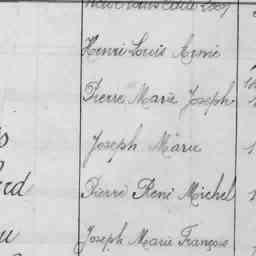 Henri Louis Aimé
Pierre Marie Joseph
Joseph Marie
Pierre René Michel
Joseph Marie François